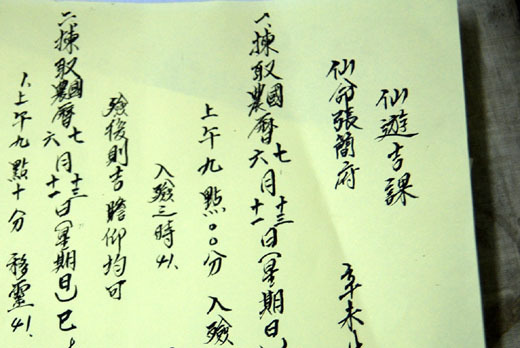 仙遊吉課
仙命張簡府 辛未
1.揀取國曆七月十三日(星期日)
農曆六月十一日
上午九點00分 入殮
入殮三時41.
殮後則吉 瞻仰均可
二揀取國曆七月十三日(星期日)巳
農曆六月十一日
1.上午九點十分 移靈41.